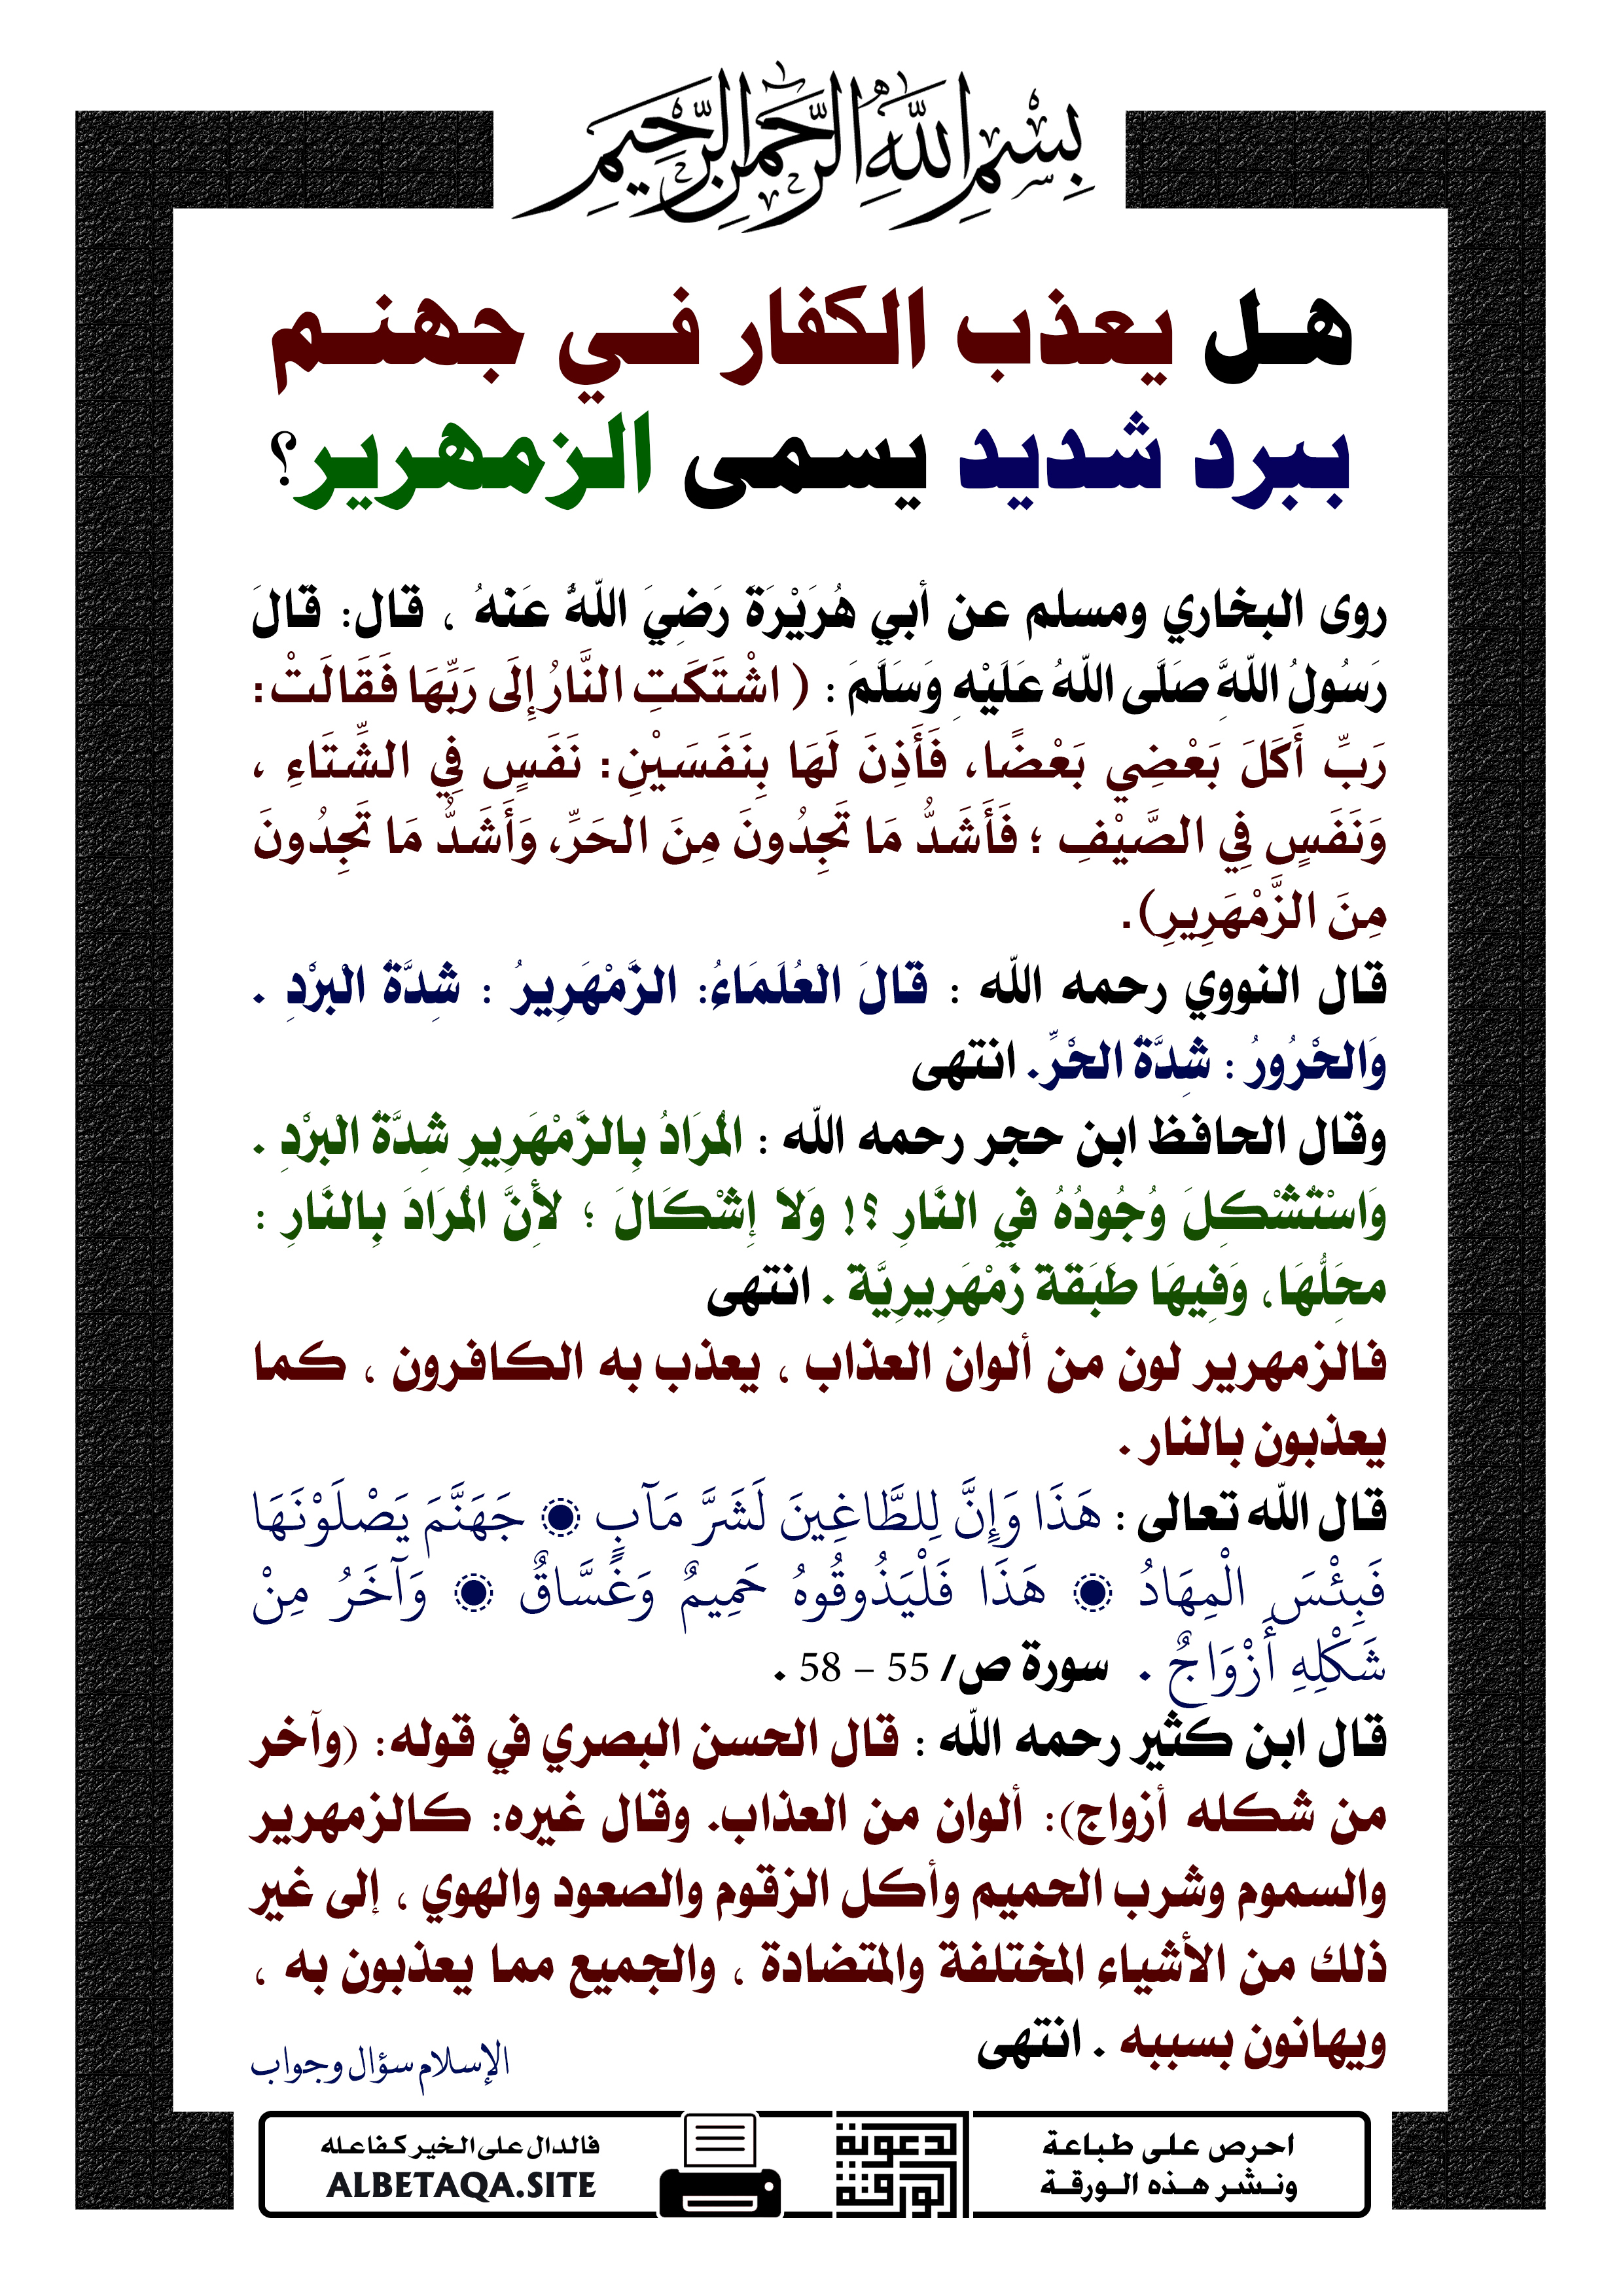 بِسْمِ اللَّهِ الرَّحْمَنِ الرَّحِيمِ
هل يعذب الكفار في جهنم
ببرد شديد يسمى الزمهرير؟
روى البخاري ومسلم عن أبي هُرَيْرَةَ رَضِيَ اللَّهُ عَنْهُ ، قال: قَالَ
رَسُولُ اللَّهِ صَلَّى اللهُ عَلَيْهِ وَسَلَّمَ : ( اشْتَكَتِ النَّارُ إِلَى رَبِّهَا فَقَالَتْ:
رَبِّ أَكَلَ بَعْضِي بَعْضًا، فَأَذِنَ لَهَا بِنَفَسَيْنِ: نَفَسٍ فِي الشِّتَاءِ ،
وَنَفَسٍ فِي الصَّيْفِ ؛ فَأَشَدُّ مَا تَجِدُونَ مِنَ الحَرِّ، وَأَشَدُّ مَا تَجِدُونَ
مِنَ الزَّمْهَرِيرِ).
قال النووي رحمه الله : قَالَ الْعُلَمَاءُ: الزَّمْهَرِيرُ : شِدَّةُ الْبَرْدِ .
وَالْحَرُورُ : شِدَّةُ الْحَرِّ. انتهى
وقال الحافظ ابن حجر رحمه الله : الْمُرَادُ بِالزَّمْهَرِيرِ شِدَّةُ الْبَرْدِ .
وَاسْتُشْكِلَ وُجُودُهُ فِي النَّارِ ؟! وَلَا إِشْكَالَ ؛ لأَنَّ الْمُرَادَ بِالنَّارِ :
مَحَلُّهَا، وَفِيهَا طَبَقَة زَمْهَرِيرِيَّة . انتهى
فالزمهرير لون من ألوان العذاب ، يعذب به الكافرون ، كما
يعذبون بالنار .
قال الله تعالى : هَذَا وَإِنَّ لِلطَّاغِينَ لَشَرَّ مَآبٍ ۝ جَهَنَّمَ يَصْلَوْنَهَا
فَبِئْسَ الْمِهَادُ ۝ هَذَا فَلْيَذُوقُوهُ حَمِيمٌ وَغَسَّاقٌ ۝ وَآخَرُ مِنْ
شَكْلِهِ أَزْوَاجٌ . سورة ص/ 55 – 58 .
قال ابن كثير رحمه الله : قال الحسن البصري في قوله: (وآخر
من شكله أزواج): ألوان من العذاب. وقال غيره: كالزمهرير
والسموم وشرب الحميم وأكل الزقوم والصعود والهوي ، إلى غير
ذلك من الأشياء المختلفة والمتضادة ، والجميع مما يعذبون به ،
ويهانون بسببه . انتهى
الإسلام سؤال وجواب
احرص على طباعة
ونشر هذه الورقة
الورقة
الدعوية
فالدال على الخير كفاعله
ALBETAQA.SITE